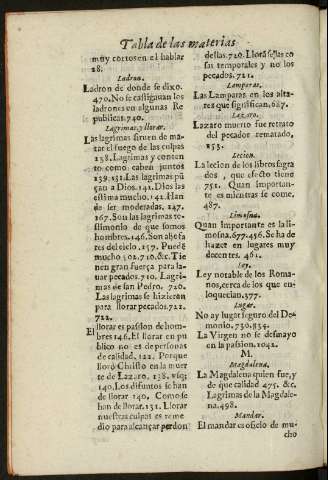 Tabla de las materias
muy cortos en el hablar
28.
Ladron.
Ladron de donde se dixo.
470. No se castigauan los
ladrones en algunas Re
publicas. 740.
Lagrimas, y llorar.
Las lagrimas siruen de ma-
tar el fuego de las culpas
138. Lagrimas y conten
to como caben juntos
139. 131. Las lagrimas pū
çan a Dios. 141. Dios las
estima mucho. 142. Han
de ser moderadas. 147.
167. Son las lagrimas te-
stimonio de que somos
hombres. 146. Son aljofa
res del cielo. 157. Puedē
mucho 502. 710. &c. Tie
nen gran fuerça para la-
uar pecados. 710. Lagri-
mas de san Pedro. 720.
Las lagrimas se hizieron
para llorar pecados. 722.
722.
El llorar es passion de hom-
bres 146. El llorar en pu
blico no es de personas
de calidad, 122. Porque
lloró Christo en la muer
te de Lazaro, 138. vsq;
140. Los difuntos se han
de llorar 140. Como se
han de llorar. 131. Llorar
nuestras culpas es reme
dio para alcançar perdon
dellas. 720. Llorā se las co
sas temporales y no los
pecados. 721.
Lamparas.
Las Lamparas en los alta-
res que significan. 687.
Lazaro.
Lazaro muerto fue retrato
del pecador rematado,
153.
Lecion.
La lecion de los libros sagra
dos, que efecto tiene
751. Quan importan-
te es mientras se come.
487.
Limosna.
Quan importante es la li-
mosna. 677. 456. Se ha de
hazer en lugares muy
docentes. 461.
Ley.
Ley notable de los Roma-
nos, cerca de los que en-
loquecian. 377.
Lugar.
No ay lugar seguro del De-
monio. 730. 834.
La Virgen no se desmayo
en la passion. 1042.
M.
Magdalena.
La Magdalena quien fue, y
de que calidad 475. &c.
Lagrimas de la Magdale-
na. 498.
Mandar.
El mandar es oficio de mu-
cho